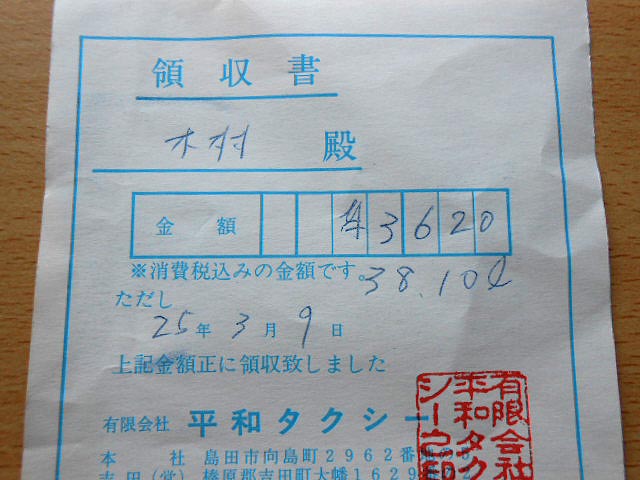 領収書
木村 殿
金額 ¥3620
※消費税込みの金額です。
38.10ℓ
ただし
25年3月9日
上記金額正に領収致しました
有限会社 平和タクシー
本社 島田市向島町2962番地の5
吉田(営) 榛原郡吉田町大幡1629番
有限会社
平和タク
シー